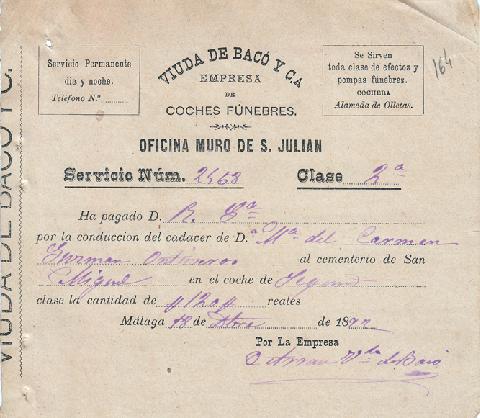 VIUDA DE BACÓ Y C.A
EMPRESA
DE
COCHES FÚNEBRES.
Servicio Permanente
dia y noche.
Teléfono N.º
Se Sirven
toda clase de efectos y
pompas fúnebres.
COCHERA
Alameda de Olletas.
164
OFICINA MURO DE S. JULIAN
Servicio Núm. 2468 Clase 2ª
Ha pagado D. R. Eª
por la conduccion del cadacer de D.ª Mª del Carmen
Guzman
al cementerio de San
Miguel en el coche de Segunda
clase la cantidad de #120# reales
Málaga 18 de de 1892
Por La Empresa
Vda de Bacó
VIUDA DE BACO Y C.